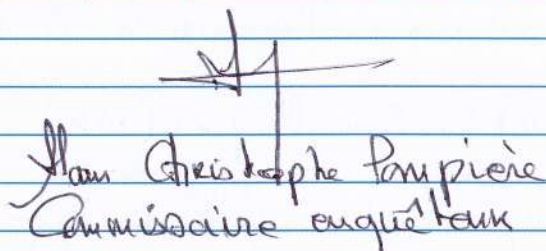 Alain Christophe Pompière
Commissaire enquêteur